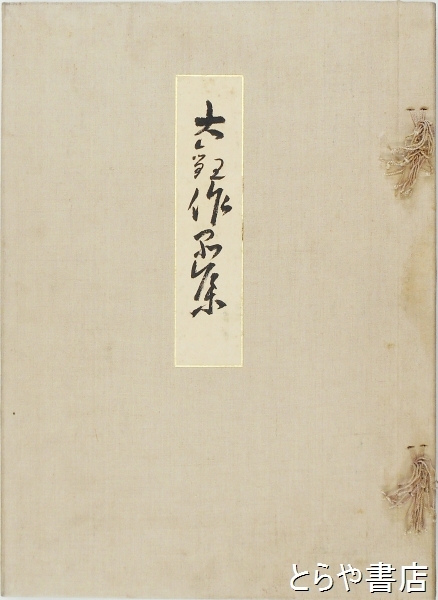 大観作品集
とらや書店